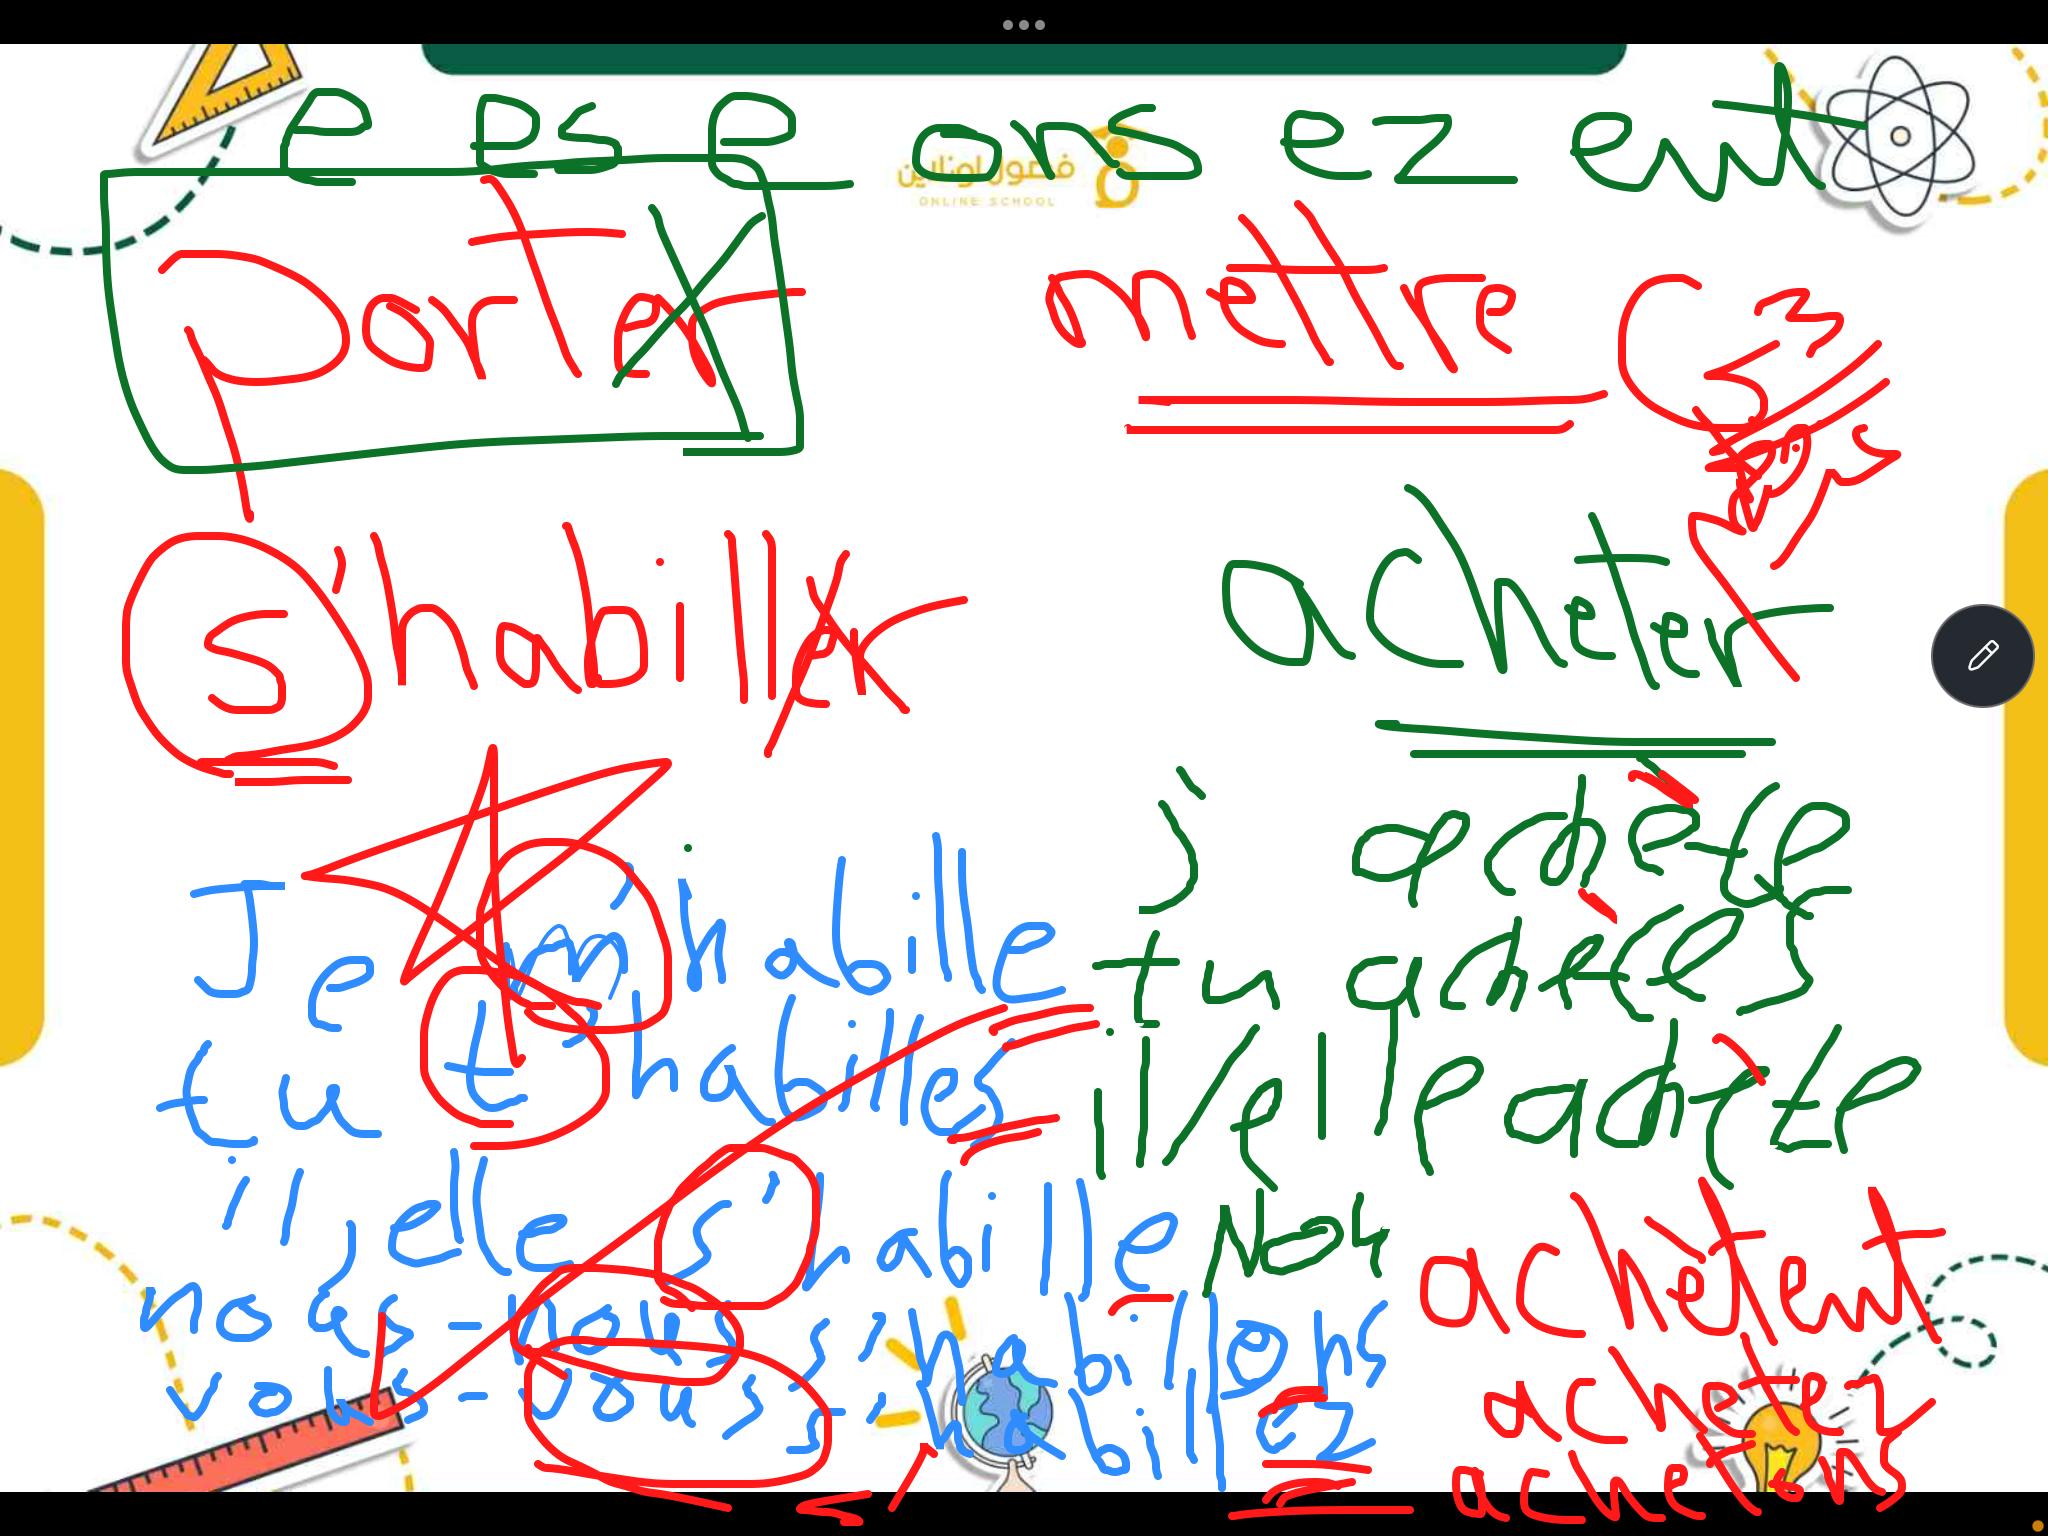 e es e ons ez ent
فصول اونلاين
ONLINE SCHOOL
porter
mettre
s'habiller
acheter
Je m'habille
tu t'habilles
il, elle s'habille
nous - nous
vous - vous
habillons
habillez
j'
achète
tu achètes
il/elle achète
achètent
achetez
achetons